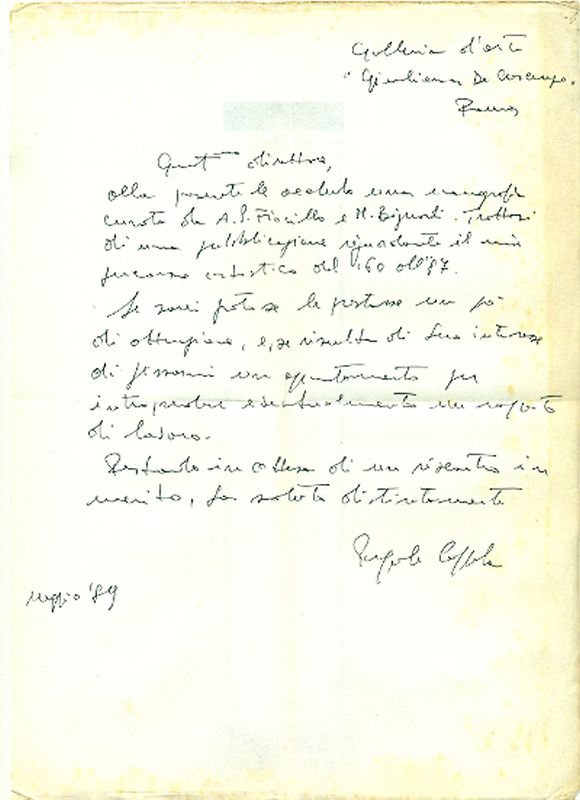 Galleria d'arte
"Giuliana De Crescenzo.
Roma
Gent.ma direttrice,
alla presente le accludo una monografia
curata da A.P. Fiorillo e M. Bignardi. Trattasi
di una pubblicazione riguardante il mio
percorso artistico dal '60 all'87.
Le sarei grato se le prestasse un po'
di attenzione, e, se risulta di Suo interesse
di fissarmi un appuntamento per
intraprendere eventualmente un rapporto
di lavoro.
Restando in attesa di un riscontro in
merito, La saluto distintamente
Coppola
maggio '89